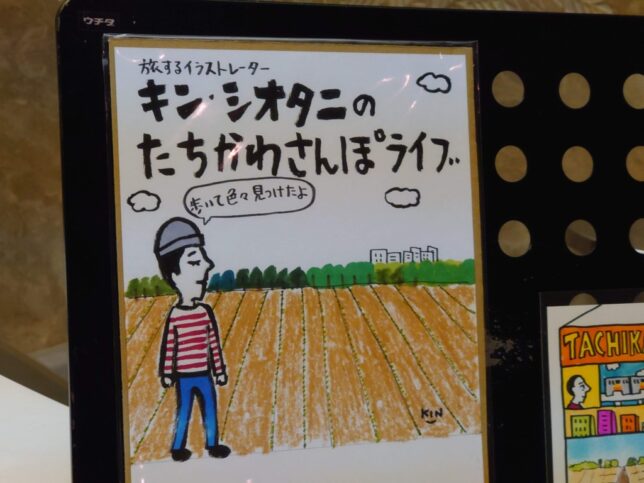 ウチダ
旅するイラストレーター
キン・シオタニの
たちかわさんぽライブ
歩いて色々見つけたよ
KIN
TACHIKA